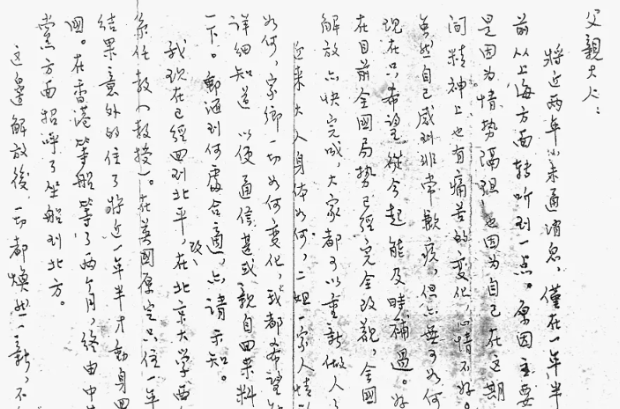 父親大人：
將近兩年未通消息，僅在一年半
前从上海方面转听到一点。原因主要
是因为情势隔阻，也因为自己在这期
间精神上也有痛苦的变化，心情不好。
虽然自己感到非常歉疚，但亦無可如何
现在只希望從今起能及時補過。好
在目前全國局势已經完全改觀，全國
解放亦快完成，大家都可以重新做人
近来大人身体如何，二姐一家人情
如何，家鄉一切如何变化，我都希望
详细知道，以便通信甚或親自回来料
一下。郵滙到何處合適，亦请示知。
我现在已經回到北平，在北京大学西
系任教（教授）。在英國原定只住一年
結果意外的住了將近一年半才動身回
國。在香港等船等了两个月，經由中
黨方面招呼了坐船到北方。
這邊解放後一切都焕然一新，不